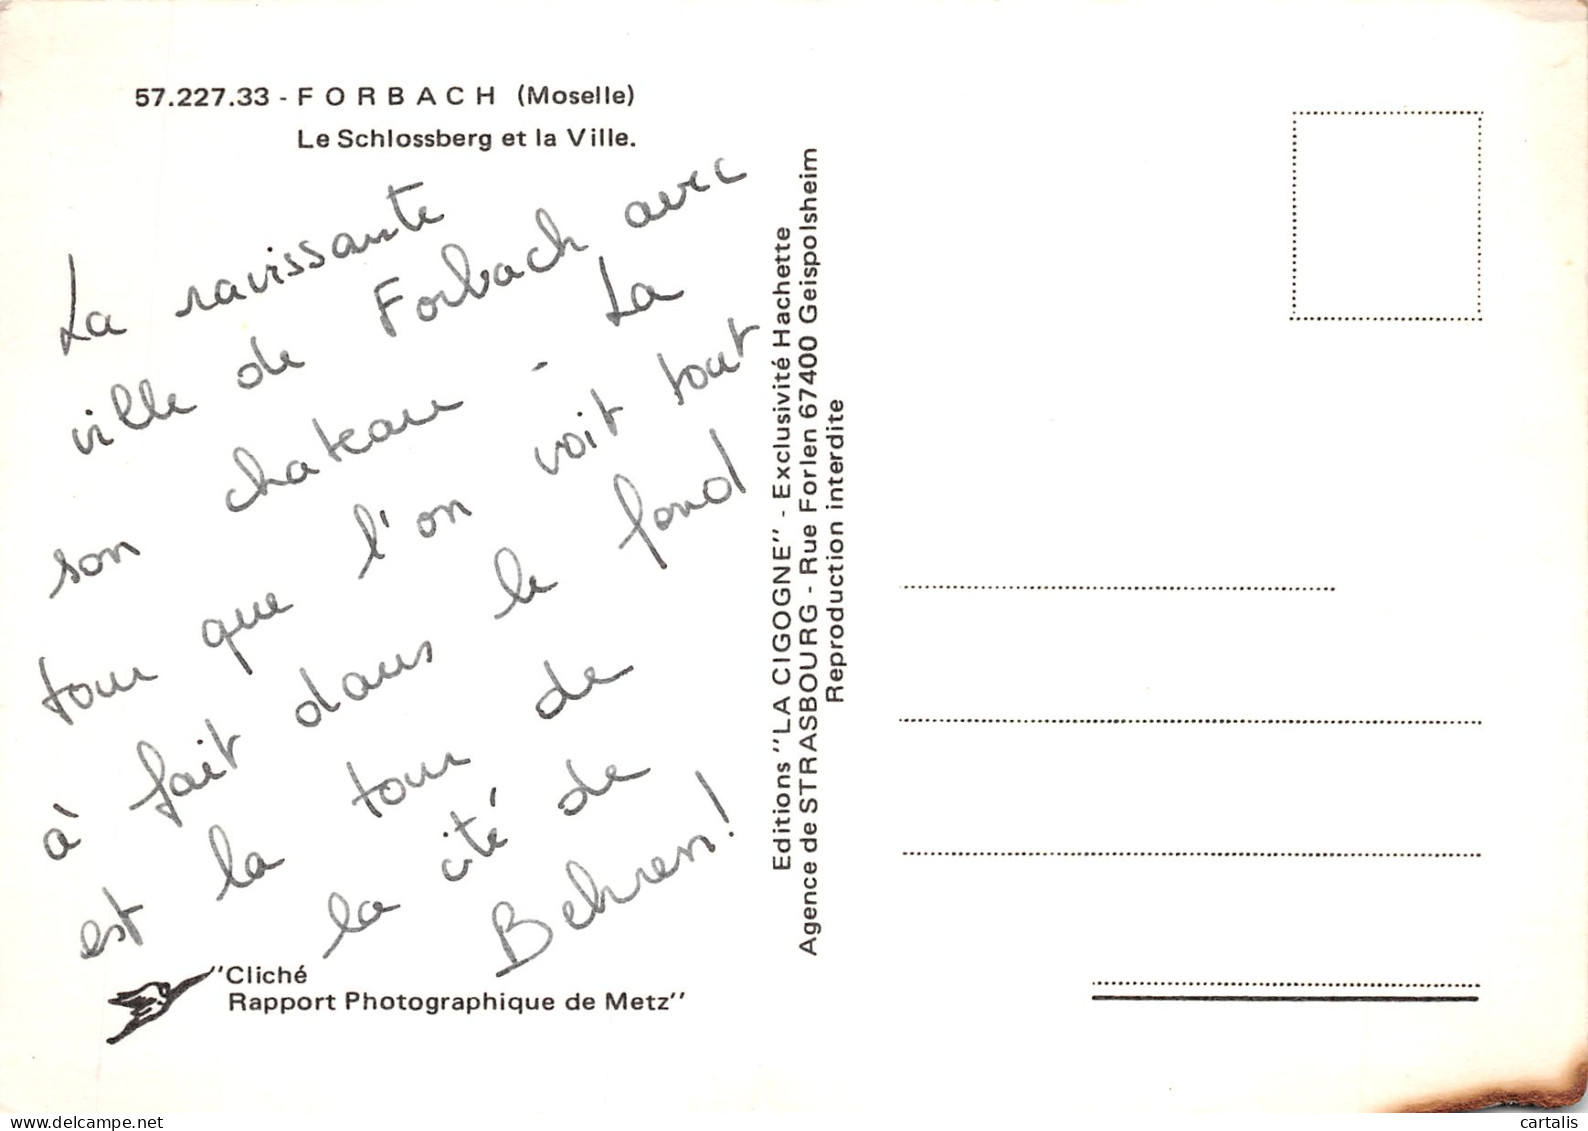 57.227.33 - FORBACH (Moselle)
Le Schlossberg et la Ville.
La ravissante
ville de Forbach avec
son chateau - La
tour que l'on voit tout
à fait dans le fond
est la tour de
la cité de
Behren!
"Cliché
Rapport Photographique de Metz"
Editions "LA CIGOGNE" - Exclusivité Hachette
Agence de STRASBOURG - Rue Forlen 67400 Geispolsheim
Reproduction interdite
cartalis